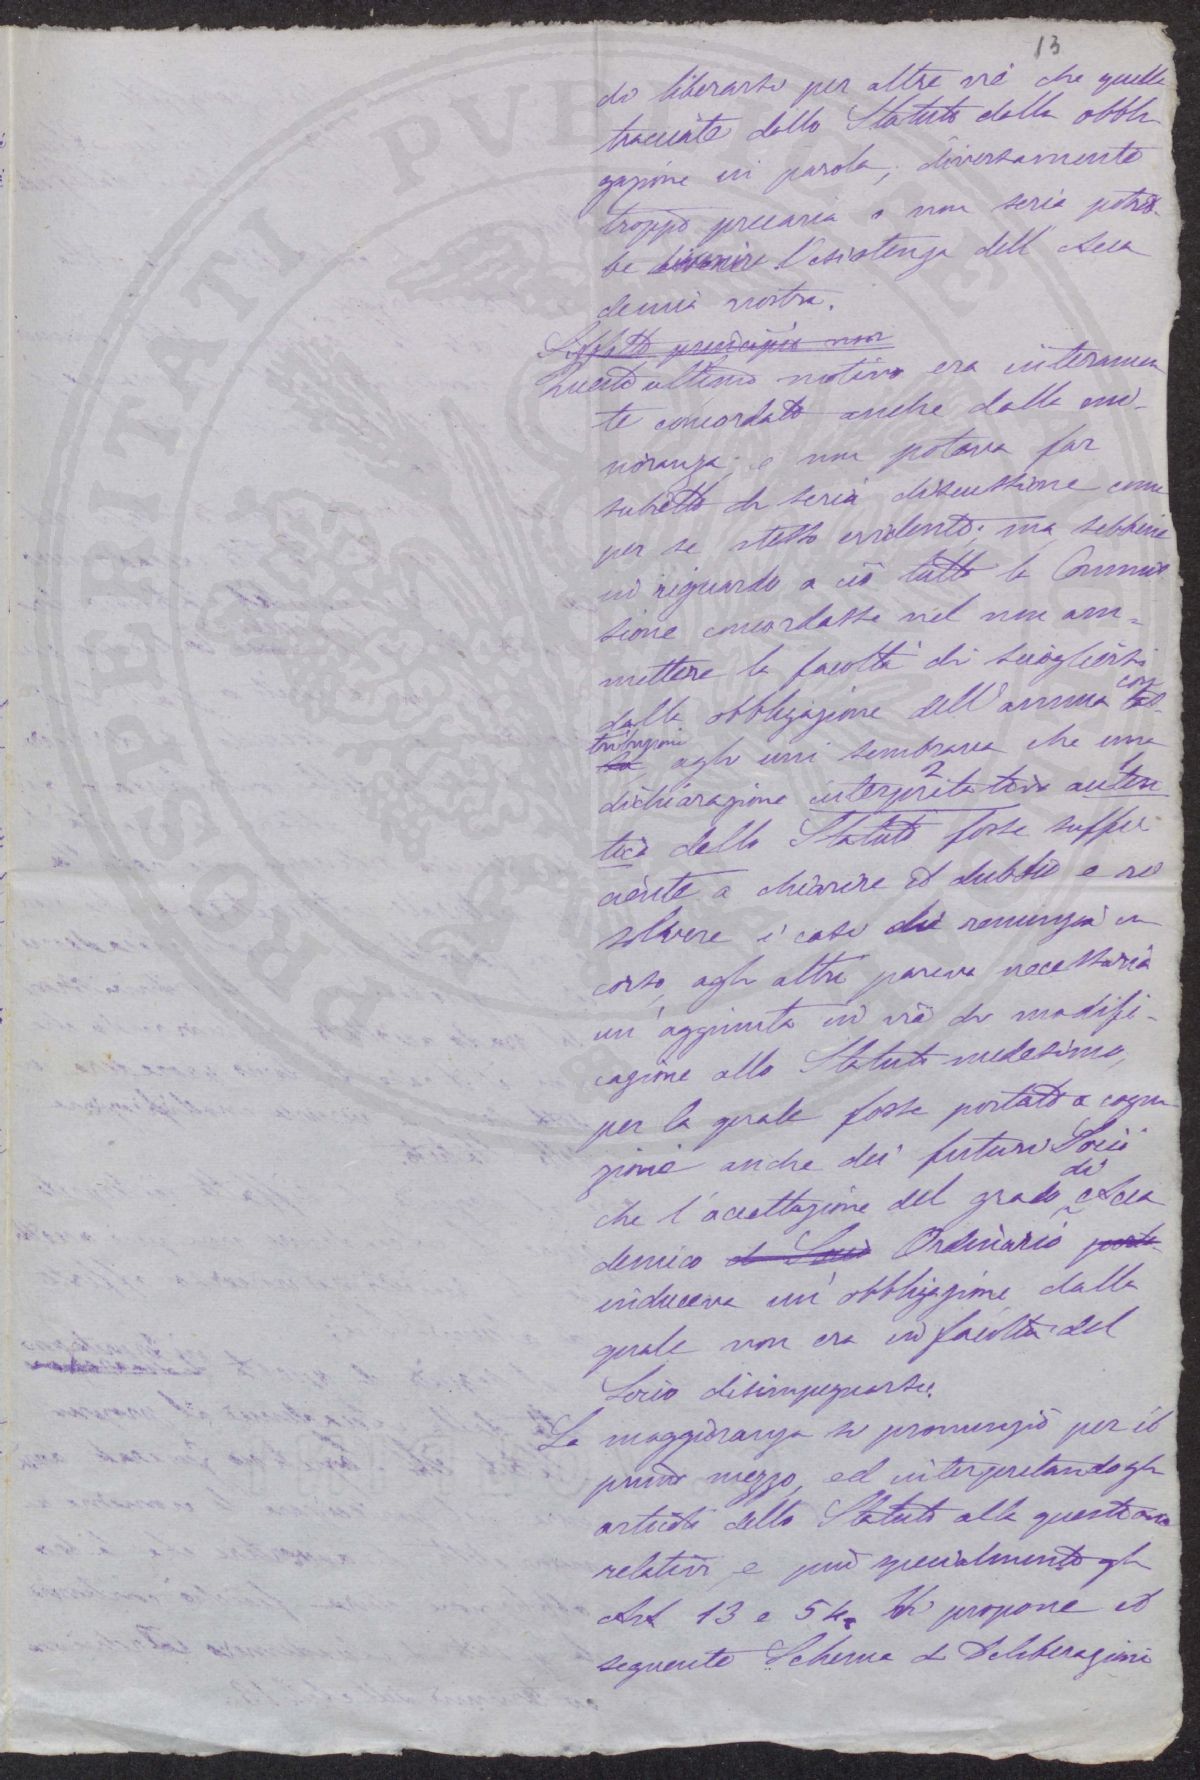 13
di liberarsi per altre vie che quelle
tracciate dallo Statuto dalla obbli
gazione in parola; diversamente
troppo precaria e non seria potreb-
be divenire l'esistenza dell' Acca
demia nostra.
Siffatto principio non
Quest'ultimo motivo era interamen
te concordato anche dalla mi-
noranza; e non poteva far
subietto di seria discussione come
per se stesso evidente; ma sebbene
in riguardo a ciò tutta la Commis
sione concordasse nel non am-
mettere la facoltà di sciogliersi
dalla obbligazione dell'annua con
tribuzione, agli uni sembrava che una
dichiarazione interpretativa auten
2 1
tica dello Statuto fosse suffi
ciente a chiarire il dubbio e ri
solvere i casi di renunzia in
corso, agli altri pareva necessaria
un' aggiunta in via di modifi-
cazione allo Statuto medesimo,
per la quale fosse portato a cogni
zione anche dei futuri Socii
che l'accettazione del grado di Acca
demico di Socio Ordinario porta-
induceva un' obbligazione dalla
quale non era in facoltà del
Socio disimpegnarsi.
La maggioranza si pronunziò per il
primo mezzo, ed interpretando gli
articoli dello Statuto alla questione
relativi, e più specialmente gli
Art 13 e 54. Vi propone il
seguente Schema di Deliberazioni